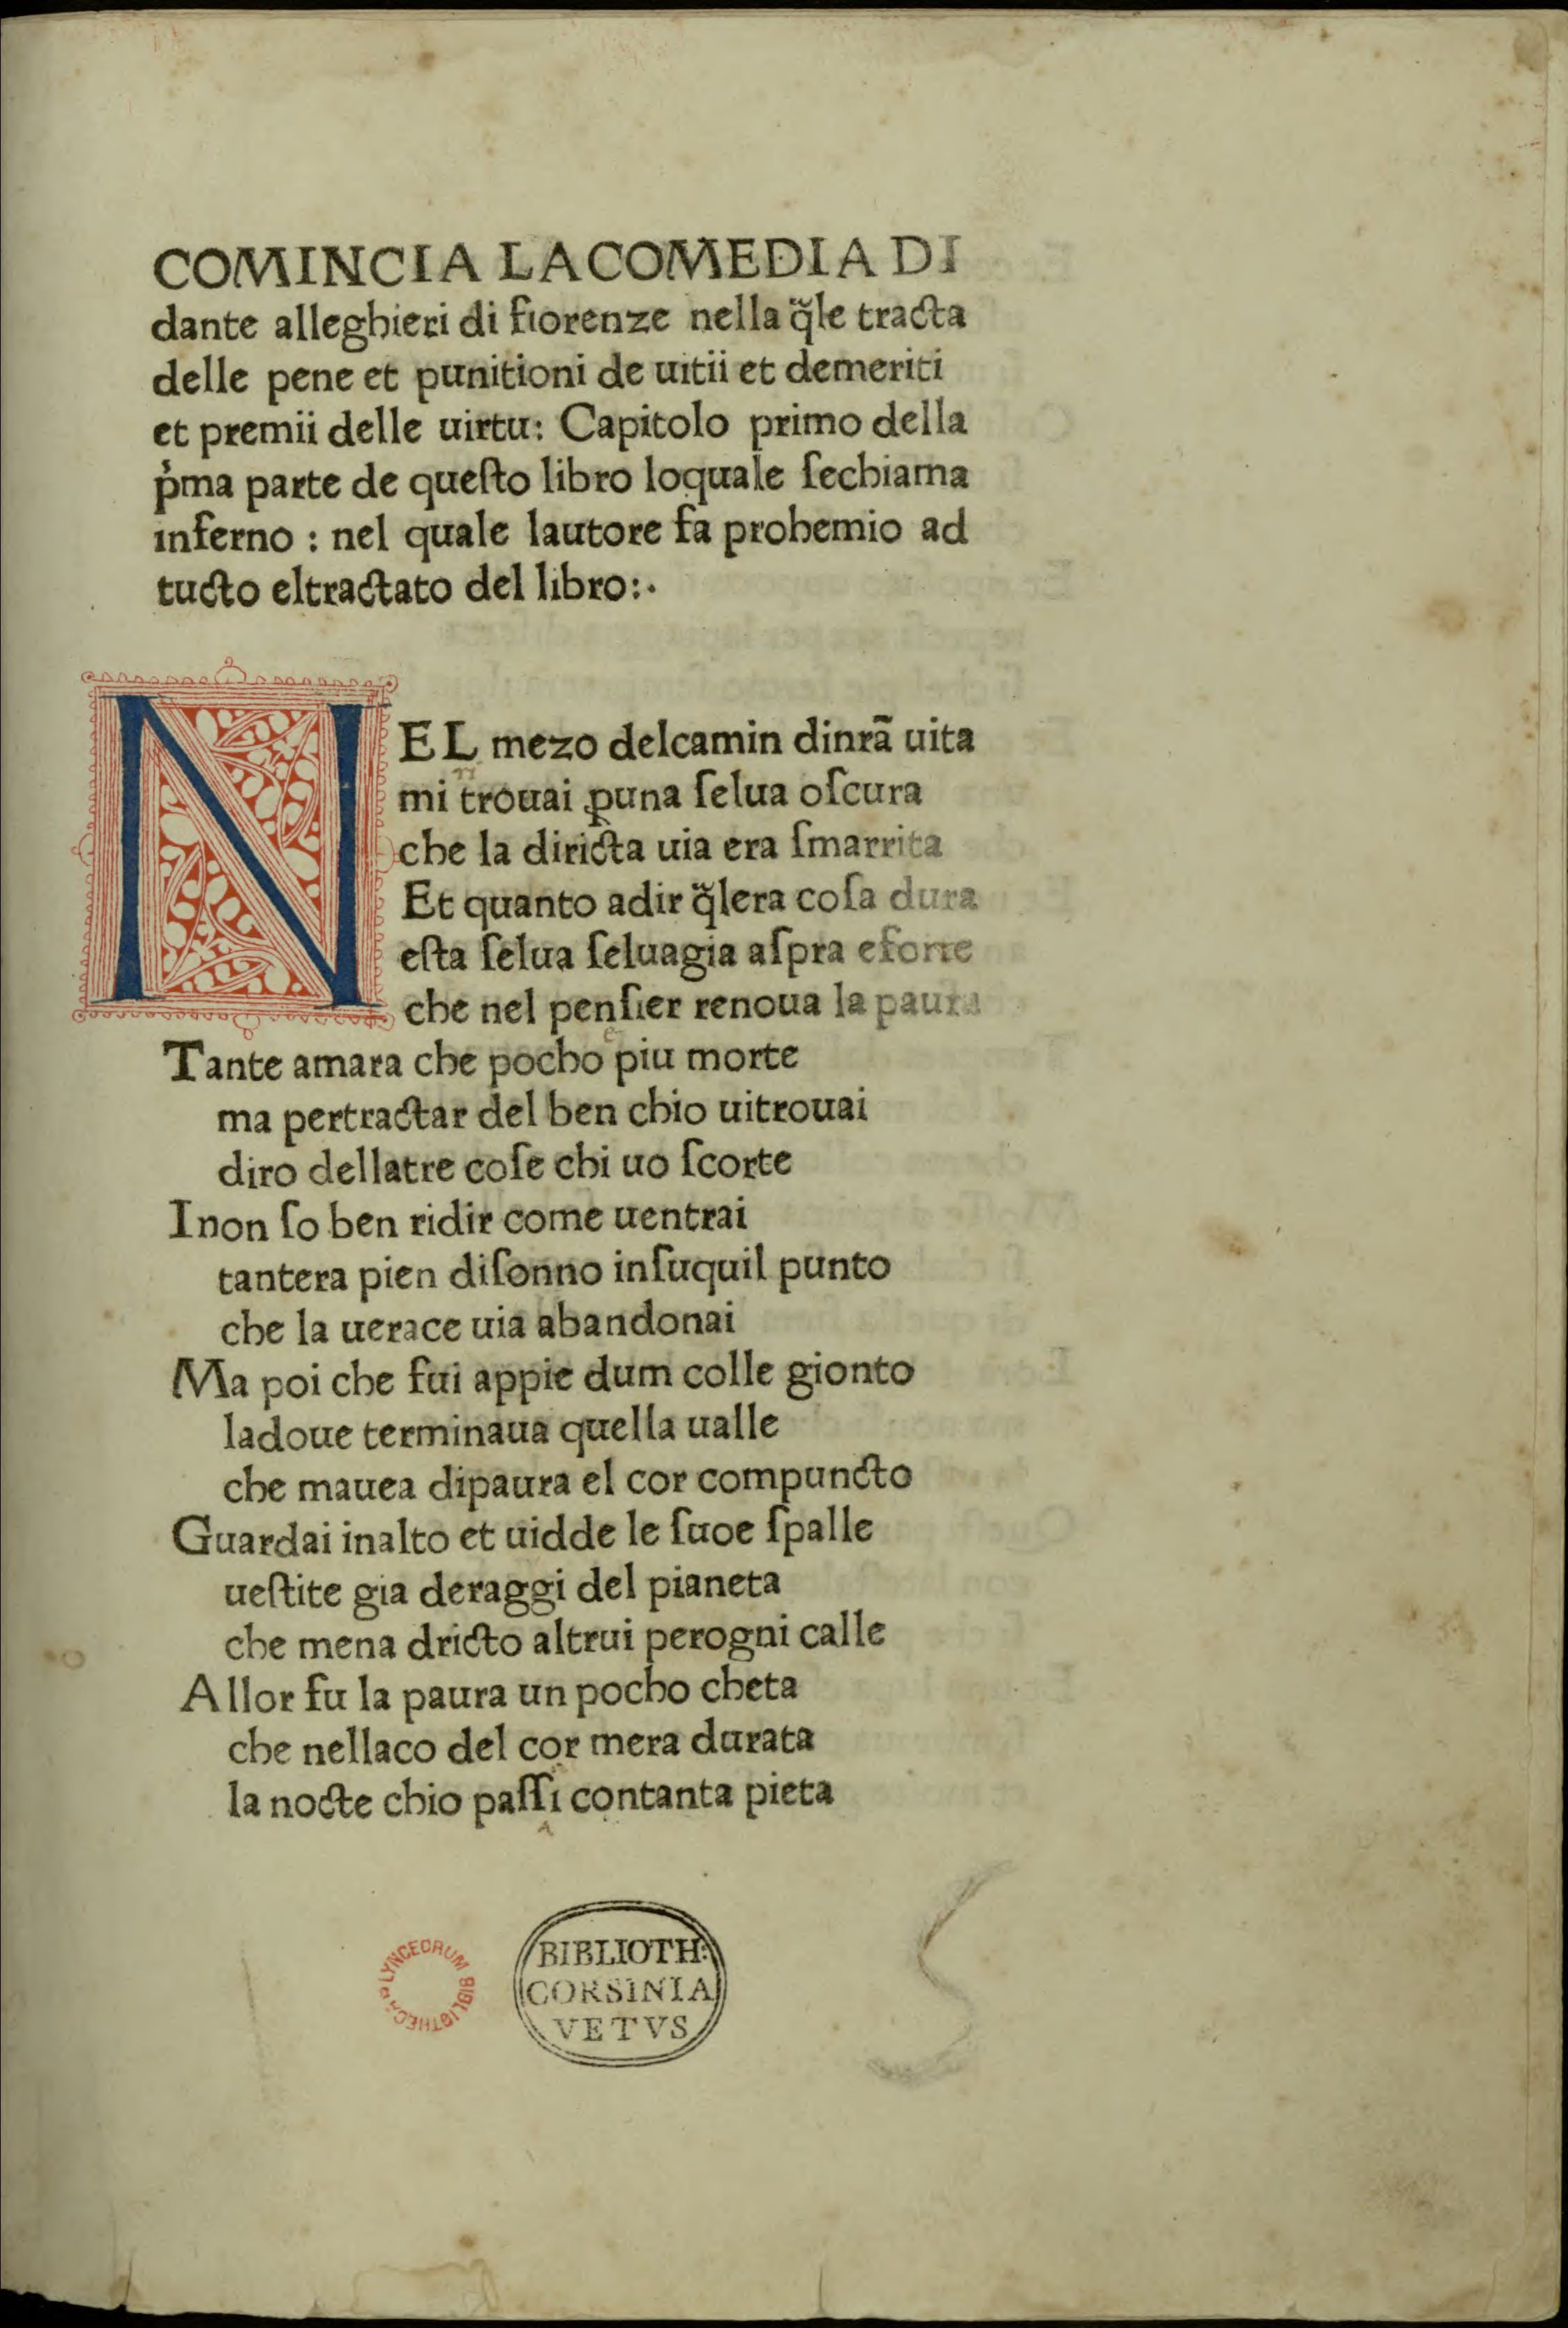 COMINCIA LA COMEDIA DI
dante alleghieri di fiorenze nella q̃le tracta
delle pene et punitioni de uitii et demeriti
et premii delle uirtu: Capitolo primo della
p̓ma parte de queſto libro loquale ſechiama
inferno : nel quale lautore fa prohemio ad
tucto eltractato del libro:·
NEL mezo delcamin dinrã uita
mi trouai ꝑuna ſelua oſcura
che la diricta uia era ſmarrita
Et quanto adir q̃lera coſa dura
eſta ſelua ſeluagia aſpra eforte
che nel penſier renoua la paura
Tante amara che pocho piu morte
ma pertractar del ben chio uitrouai
diro dellatre coſe chi uo ſcorte
Inon ſo ben ridir come uentrai
tantera pien diſonno inſuquil punto
che la uerace uia abandonai
Ma poi che fui appie dum colle gionto
ladoue terminaua quella ualle
che mauea dipaura el cor compuncto
Guardai inalto et uidde le ſuoe ſpalle
ueſtite gia deraggi del pianeta
che mena dricto altrui perogni calle
Allor fu la paura un pocho cheta
che nellaco del cor mera durata
la nocte chio paſſi contanta pieta
LYNCEORUM BIBLIOTHECA
BIBLIOTH:
CORSINIA
VETVS